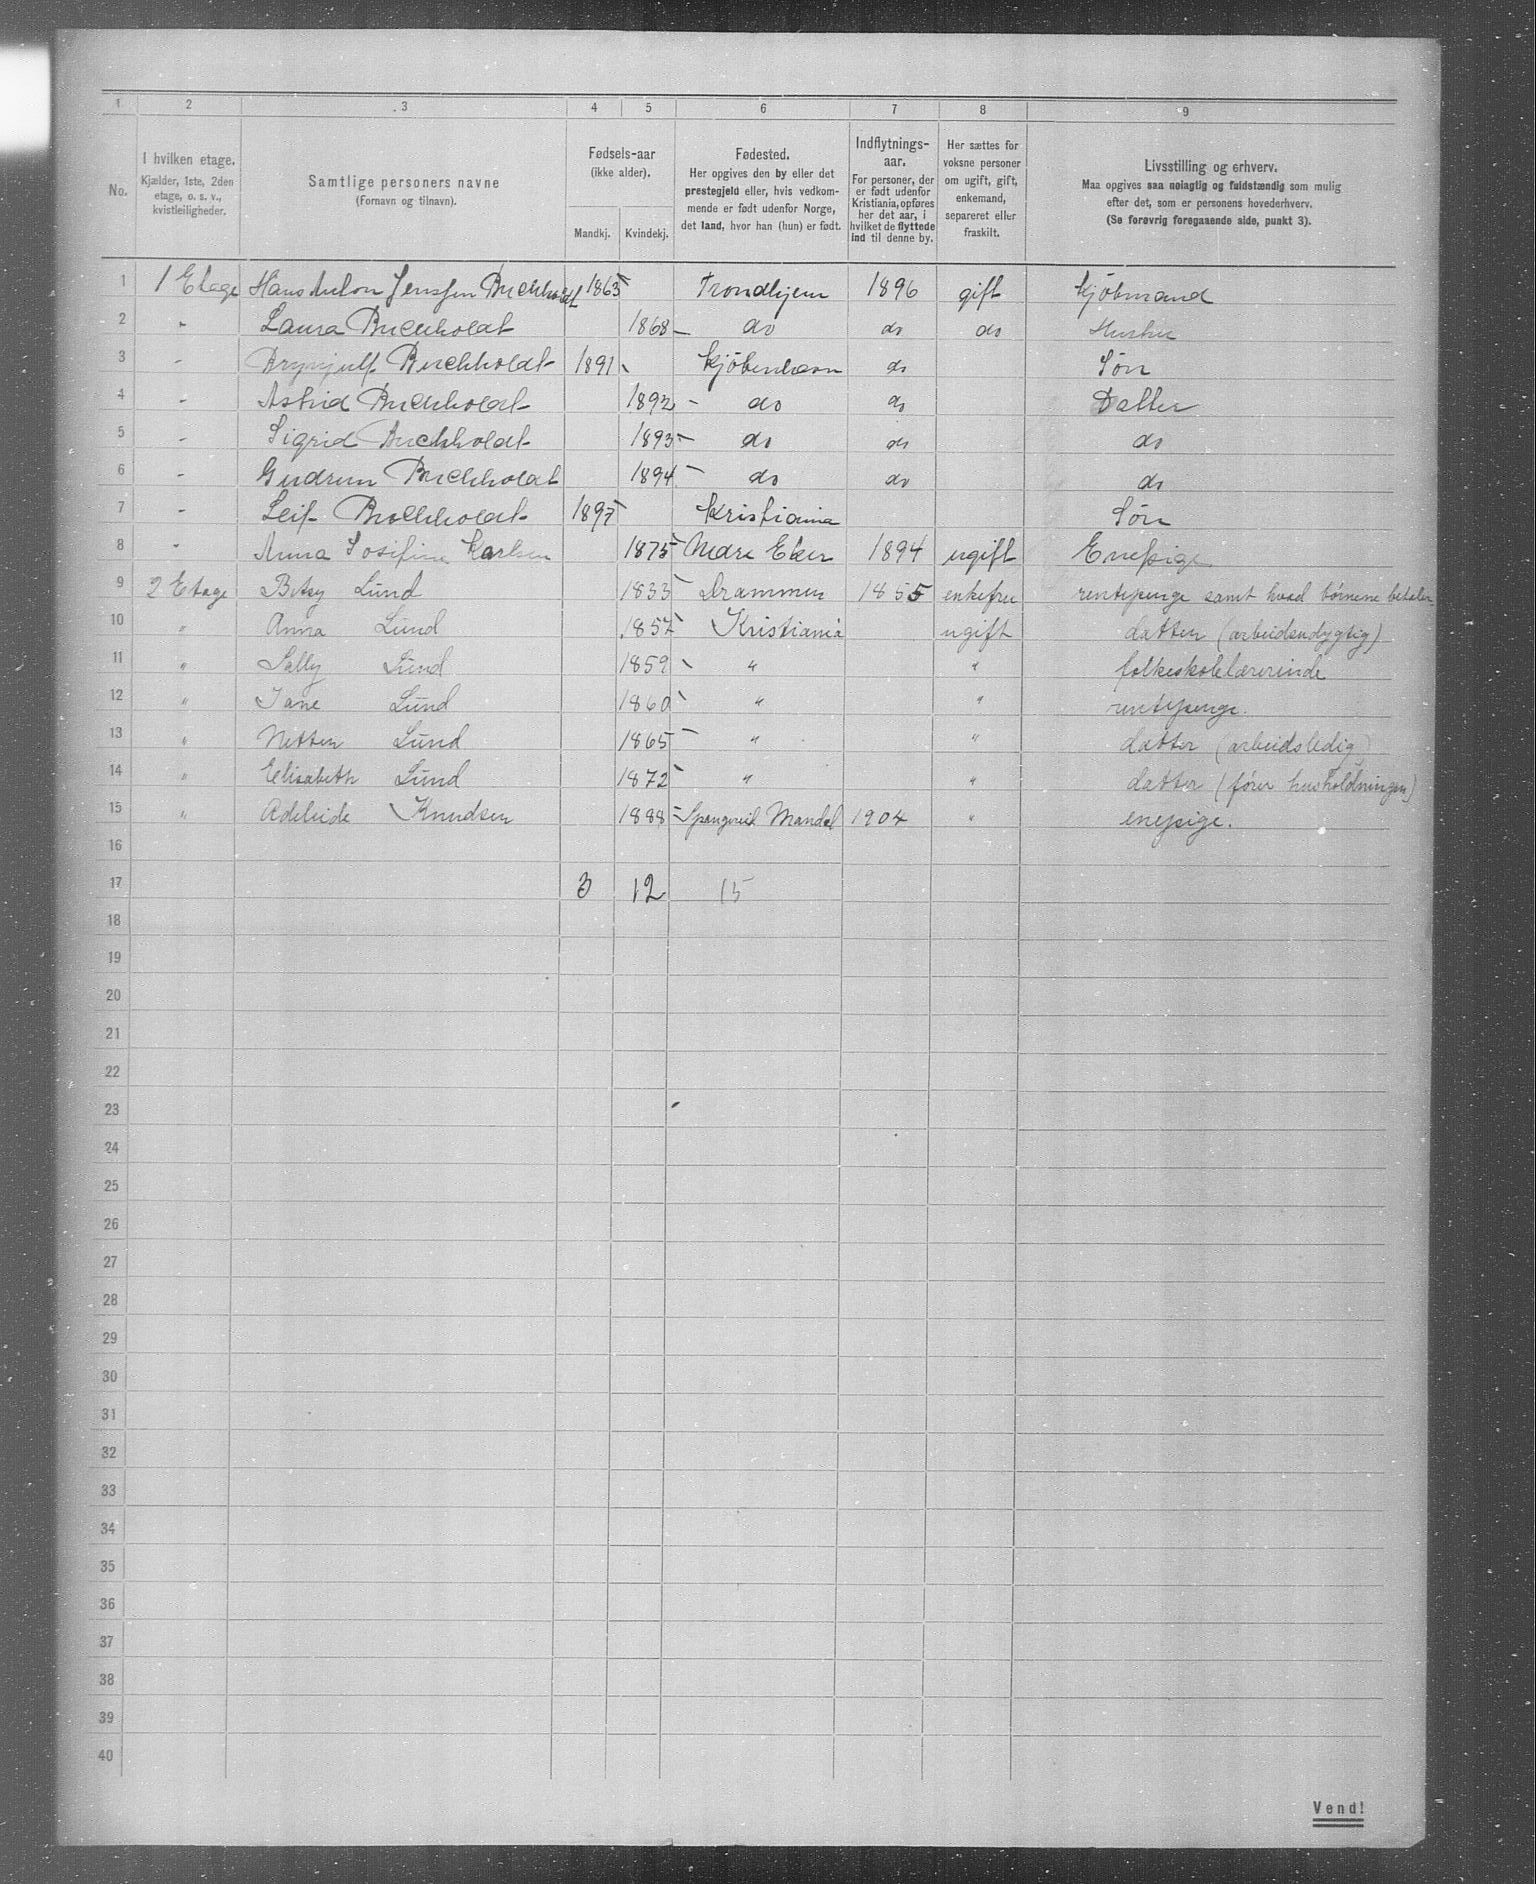 1 2 3 4 5 6 7 8 9
No.
I hvilken etage.
Kjælder, 1ste, 2den
etage, o. s. v.,
kvistleiligheder.
Samtlige personers navne
(Fornavn og tilnavn).
Fødsels-aar
(ikke alder).
Mandkj. Kvindekj.
Fødested.
Her opgives den by eller det
prestegjeld eller, hvis vedkom-
mende er født udenfor Norge,
det land, hvor han (hun) er født.
Indflytnings-
aar.
For personer, der
er født udenfor
Kristiania, opføres
her det aar, i
hvilket de flyttede
ind til denne by.
Her sættes for
voksne personer
om ugift, gift,
enkemand,
separeret eller
fraskilt.
Livsstilling og erhverv.
Maa opgives saa nøiagtig og fuldstændig som mulig
efter det, som er personens hovederhverv.
(Se forøvrig foregaaende side, punkt 3).
1 1 Etage Hans Anton Jenssen Buchholdt 1863 Trondhjem 1896 gift Kjøbmand
2 " Laura Buchholdt 1868 do do do Hustru
3 " Brynjulf Buchholdt 1891 Kjøbenhavn do Søn
4 " Astrid Buchholdt 1892 do do Datter
5 " Sigrid Buchholdt 1893 do do do
6 " Gudrun Buchholdt 1894 do do do
7 " Leif Buchholdt 1897 Kristiania Søn
8 " Anna Josifine Karlsen 1875 Nedre Eker 1894 ugift Enepige
9 2 Etage Betsy Lund 1833 Drammen 1855 enkefru rentepenge samt hvad børnene betaler
10 " Anna Lund 1857 Kristiania ugift datter (arbeidsudygtig)
11 " Sally Lund 1859 " " folkeskolelærerinde
12 " Jane Lund 1860 " " rentepenge.
13 " Netten Lund 1865 " " datter (arbeidsledig)
14 " Elisabeth Lund 1872 " " datter (fører husholdningen)
15 " Adeleide Knudsen 1888 Spangereid Mandal 1904 " enepige.
16
17 3 12 15
18
19
20
21
22
23
24
25
26
27
28
29
30
31
32
33
34
35
36
37
38
39
40
Vend!